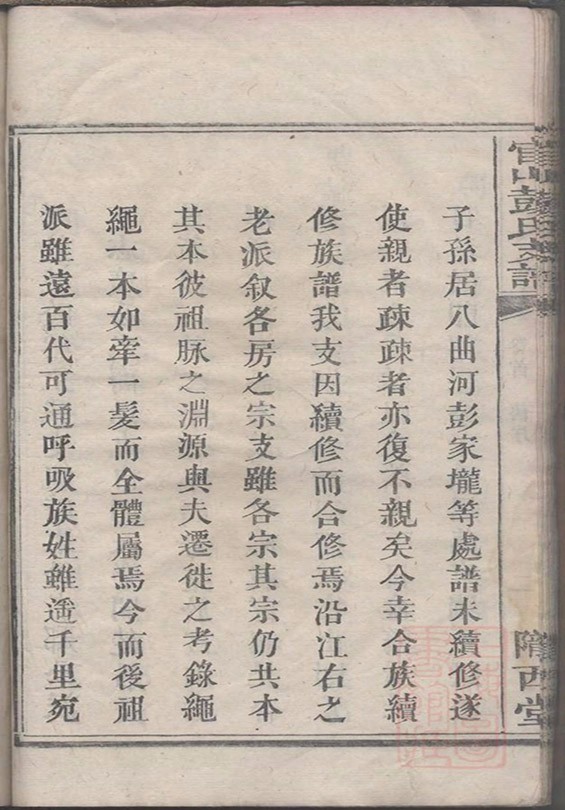 子孫居八曲河彭家壠等處譜未續修遂
使親者疎疎者亦復不親矣今幸合族續
修族譜我支因續修而合修焉沿江右之
老派叙各房之宗支雖各宗其宗仍共本
其本彼祖脉之淵源與夫遷徙之考錄繩
繩一本如牽一髮而全體屬焉今而後祖
派雖遠百代可通呼吸族姓雖遥千里宛
山彭氏支譜
隴西堂